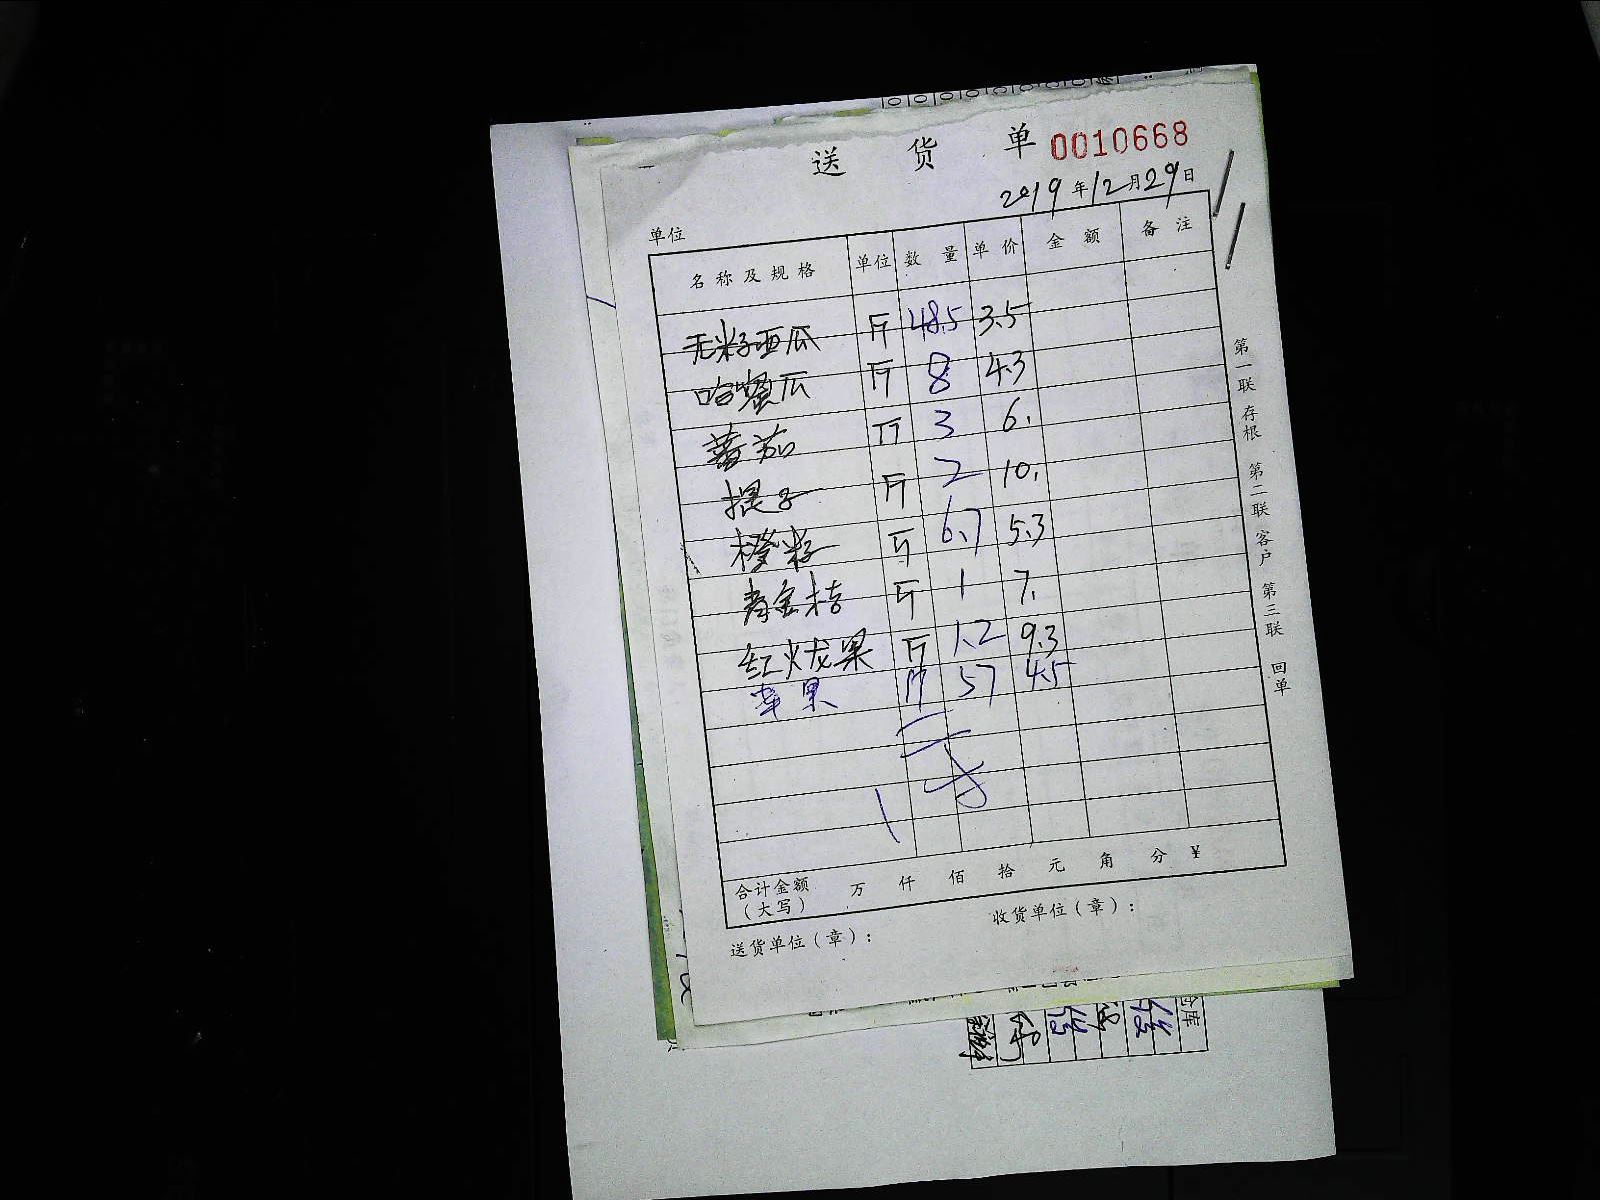 送货单 0010668
2019年12月29日
单位
名称及规格 单位 数量 单价 金额 备注
无籽西瓜 斤 48.5 3.5
哈蜜瓜 斤 8 4.3
蕃茄 斤 3 6.
提子 斤 2 10.
橙籽 斤 6.7 5.3
青金桔 斤 1 7.
红火龙果 斤 1.2 9.3
苹果 斤 57 4.5
合计金额（大写） 万 仟 佰 拾 元 角 分 ¥
送货单位（章）： 收货单位（章）：
第一联 存根 第二联 客户 第三联 回单
仓库